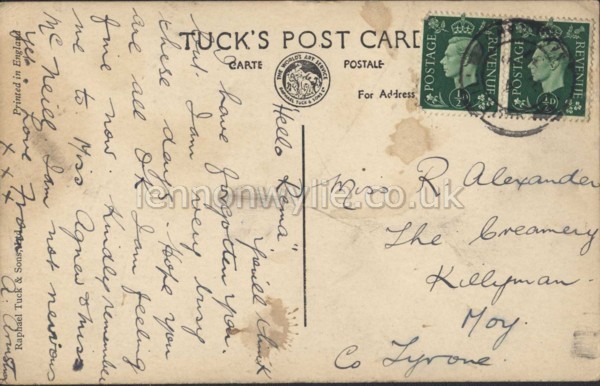 TUCK'S POST CARD
CARTE POSTALE
THE WORLD'S ART SERVICE
RAPHAEL TUCK & SONS LTD
For Address
POSTAGE
REVENUE
½D
POSTAGE
REVENUE
½D
Hello Rena" You'll think
I have forgotten you.
but I am very busy
these days. Hope you
are all O.K. I am feeling
fine now. Kindly remember
me to Miss Agnew & Miss
McNeill I am not nervous
yet. Love From
x x x A. Armstrong
Miss R Alexander
The Creamery
Killyman.
Moy.
Co Tyrone.
Raphael Tuck & Sons, Ltd.
Printed in England
lennonwylie.co.uk